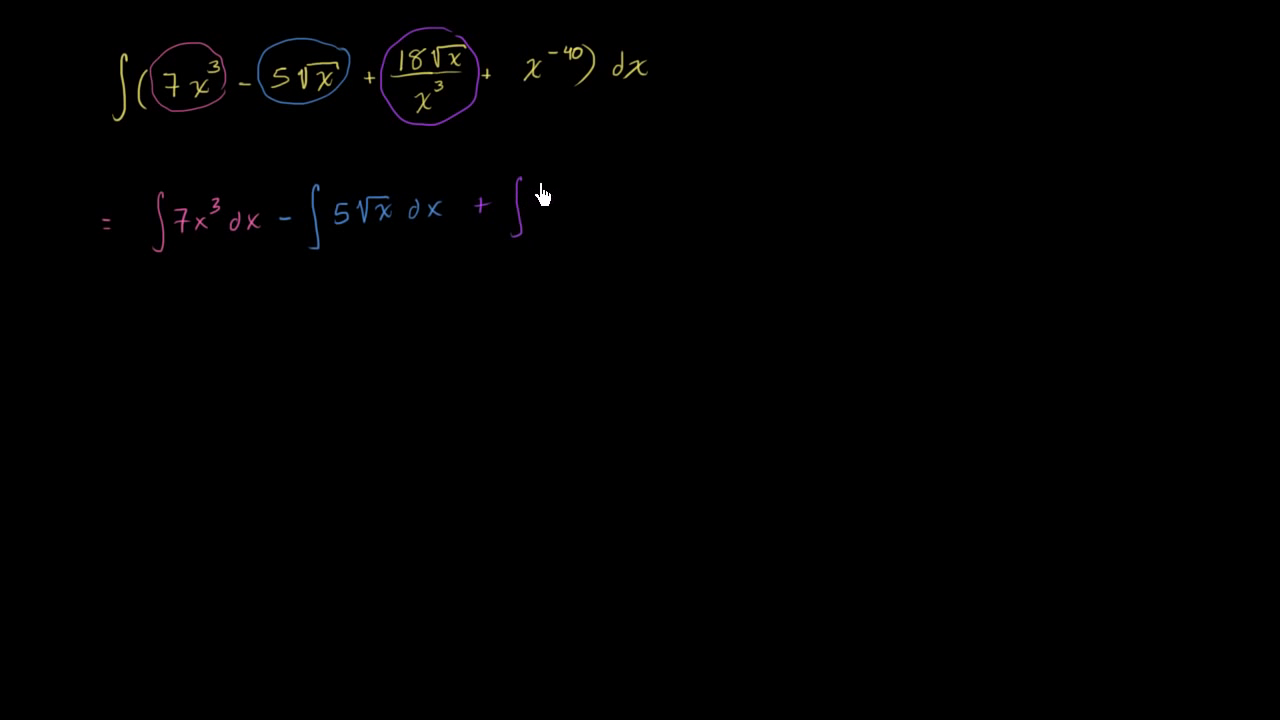 ∫(7x³ - 5√x + 18√x/x³ + x⁻⁴⁰) dx
= ∫7x³ dx - ∫5√x dx + ∫